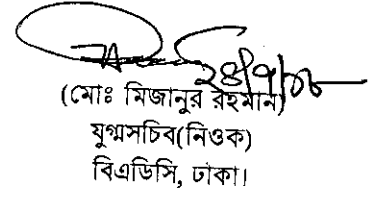 ২৪/৭/০৮
(মোঃ মিজানুর রহমান)
যুগ্মসচিব(নিওক)
বিএডিসি, ঢাকা।